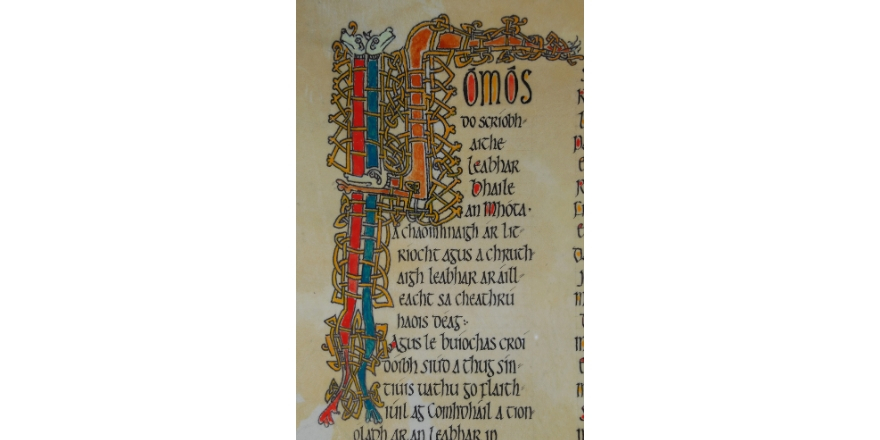 IN ÓMÓS
do scríobh-
aithe
Leabhar
Bhaile
an Mhóta.
A chaomhnaigh ar lit-
ríocht agus a chruth-
aigh leabhar ar áill-
eacht sa cheathrú
haois déag:
Agus le buíochas croí
dóibh siúd a thug sín-
tiúis uathu go flaith-
iúil ag Comhdháil a tion-
óladh ar an leabhar in